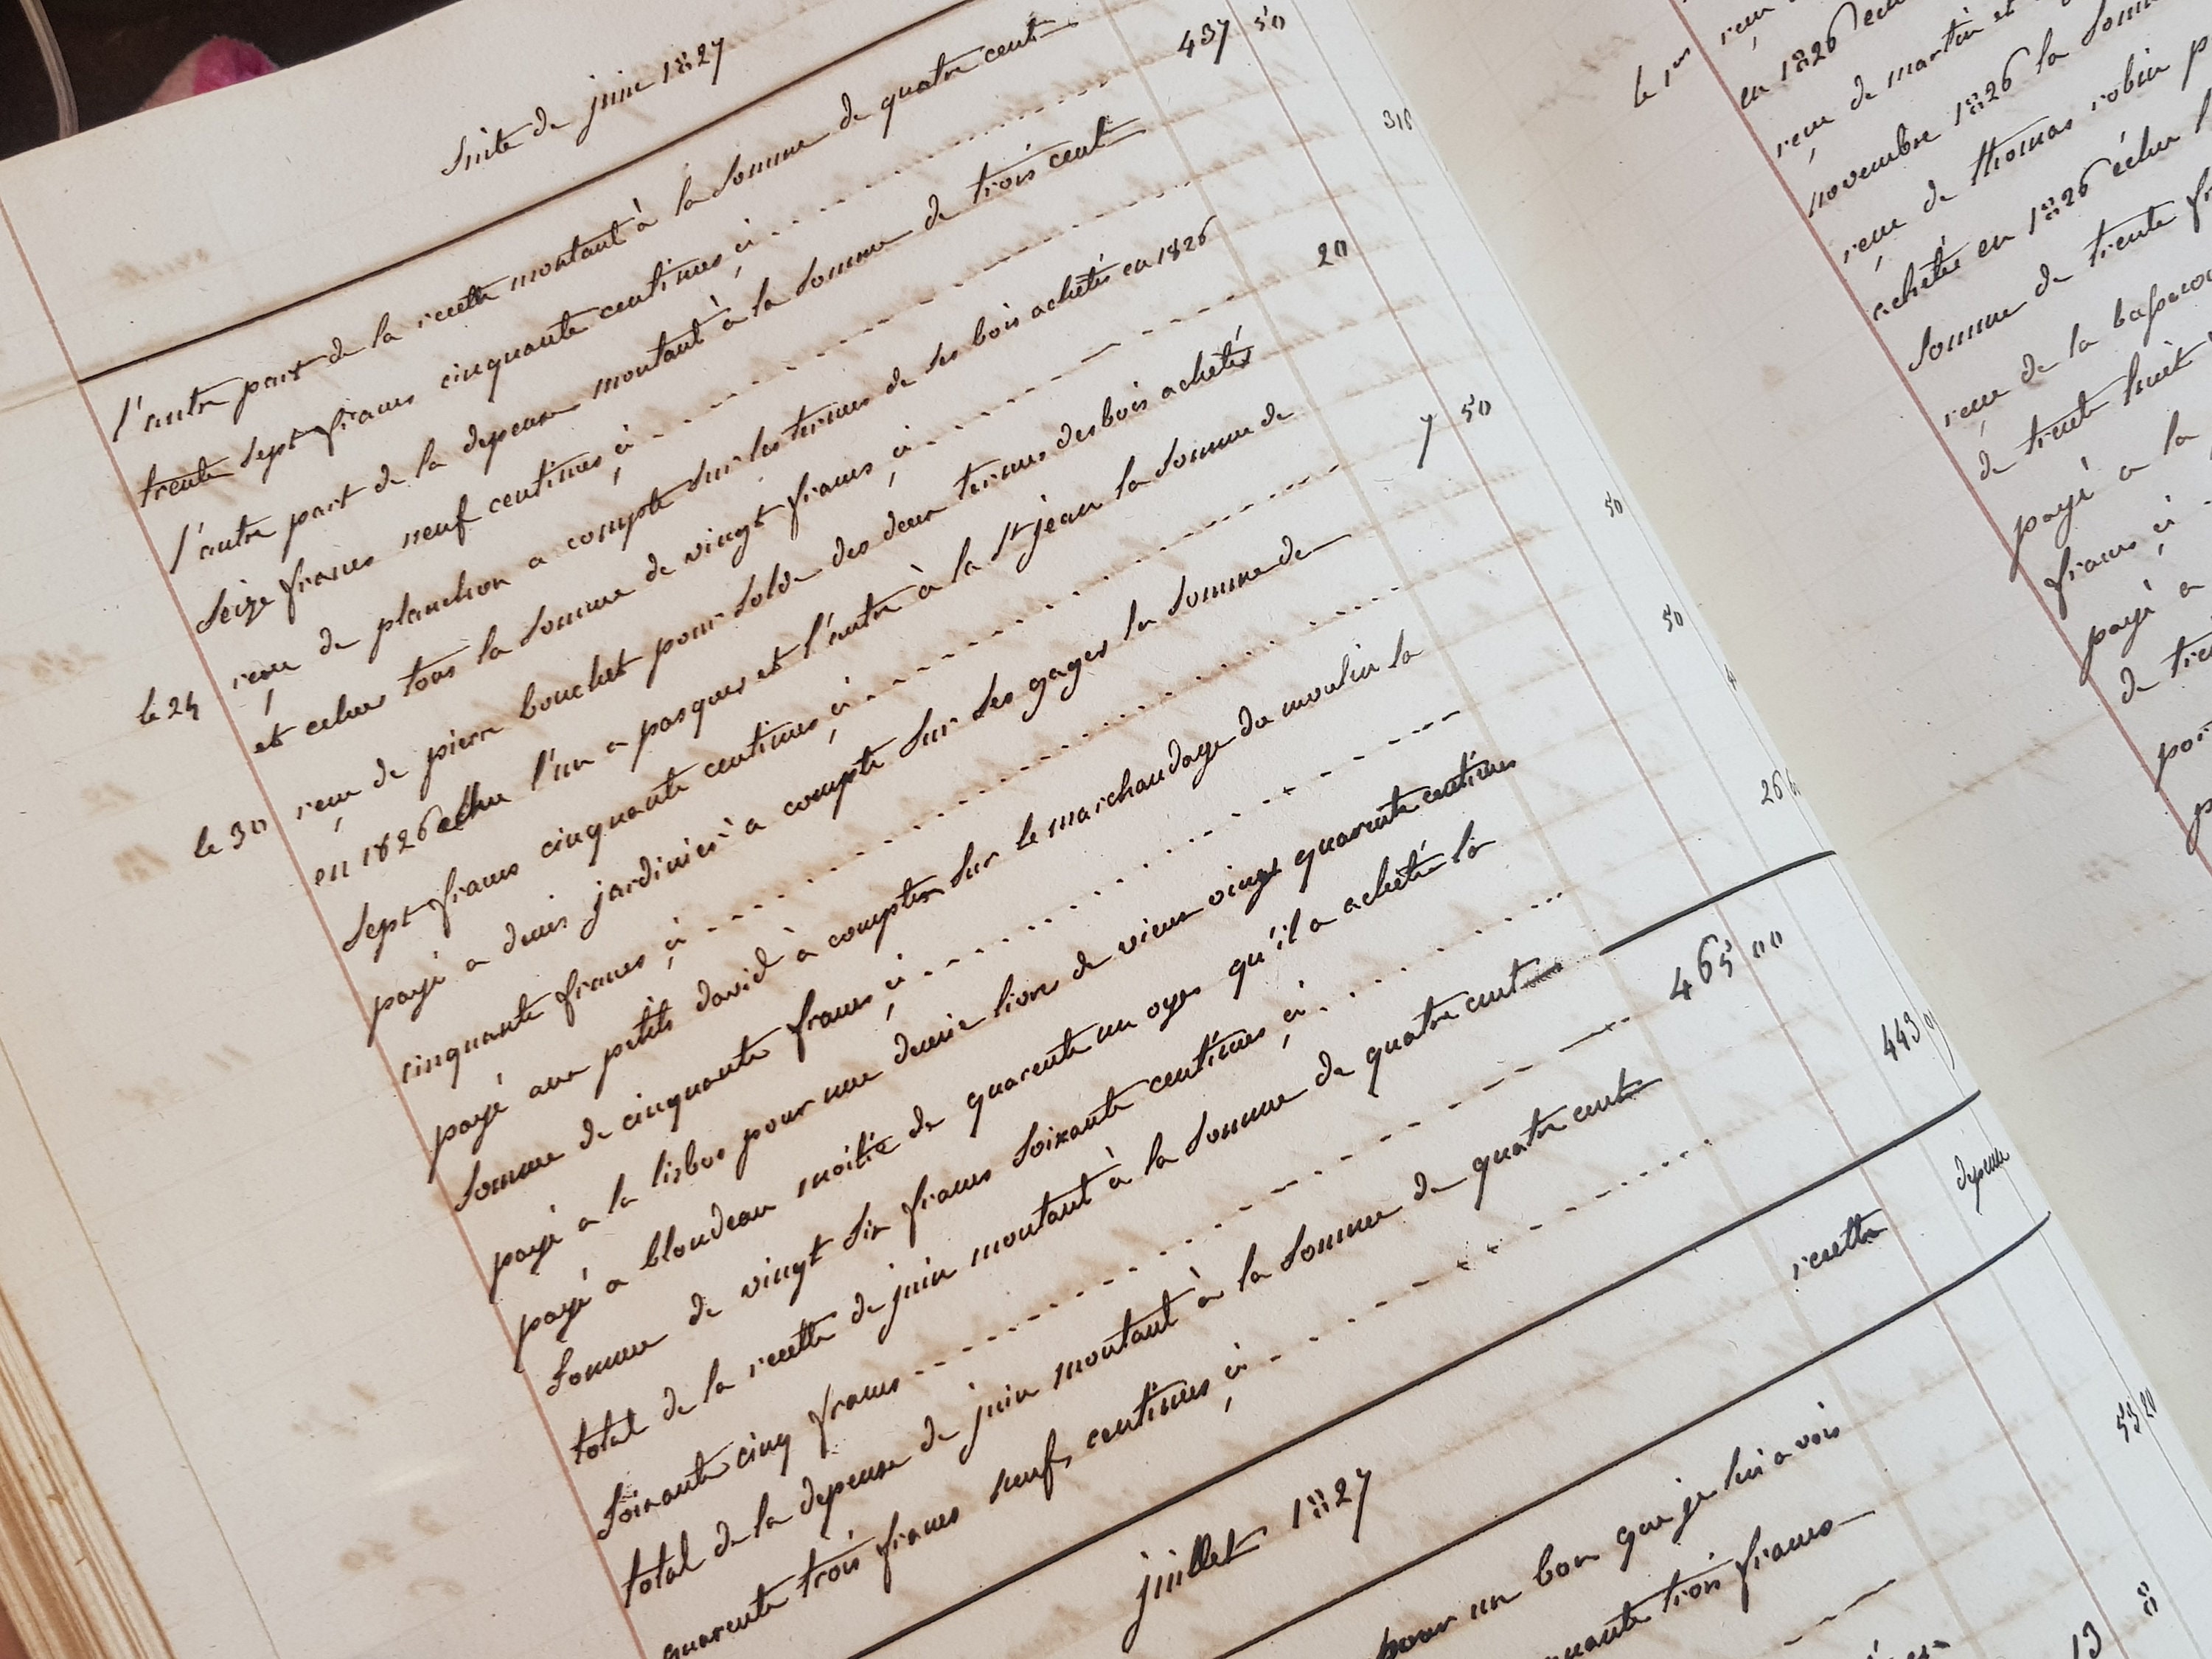 Suite de juin 1827
l'autre part de la recette montant à la somme de quatre cent
trente sept francs cinquante centimes ci 437 50
l'autre part de la depense montant à la somme de trois cent
seize francs neuf centimes ci 316
le 24 reçu de planchon a compte sur les termes de ses bois achetés en 1826
et echus tous la somme de vingt francs ci 20
le 30 reçu de pierre bouchet pour solde des deux termes des bois achetés
en 1826 echu l'un a pasques et l'autre à la St jean la somme de
sept francs cinquante centimes ci 7 50
payé a denis jardinier a compte sur ses gages la somme de
cinquante francs ci 50
payé aux petits david à compter sur le marchandage du moulin la
somme de cinquante francs ci 50
payé a la lisbos pour une demie livre de vieux oingt quarente centimes
payé a blondeau moitié de quarente un oyes qu'il a acheté la
somme de vingt six francs soixante centimes ci 26 6
total de la recette de juin montant à la somme de quatre cent
soixante cinq francs 465 00
total de la depense de juin montant à la somme de quatre cent
quarente trois francs neuf centimes ci 443 9
juillet 1827 recette depense
pour un bon que je lui avois
trois francs 53 20
13
le 1er reçu
en 1826
reçu de martin et
novembre 1826 la somme
reçu de thomas robin p
achetée en 1826 echu
somme de trente fr
reçu de la
de trente huit
payé a la
francs ci
payé a
de tre